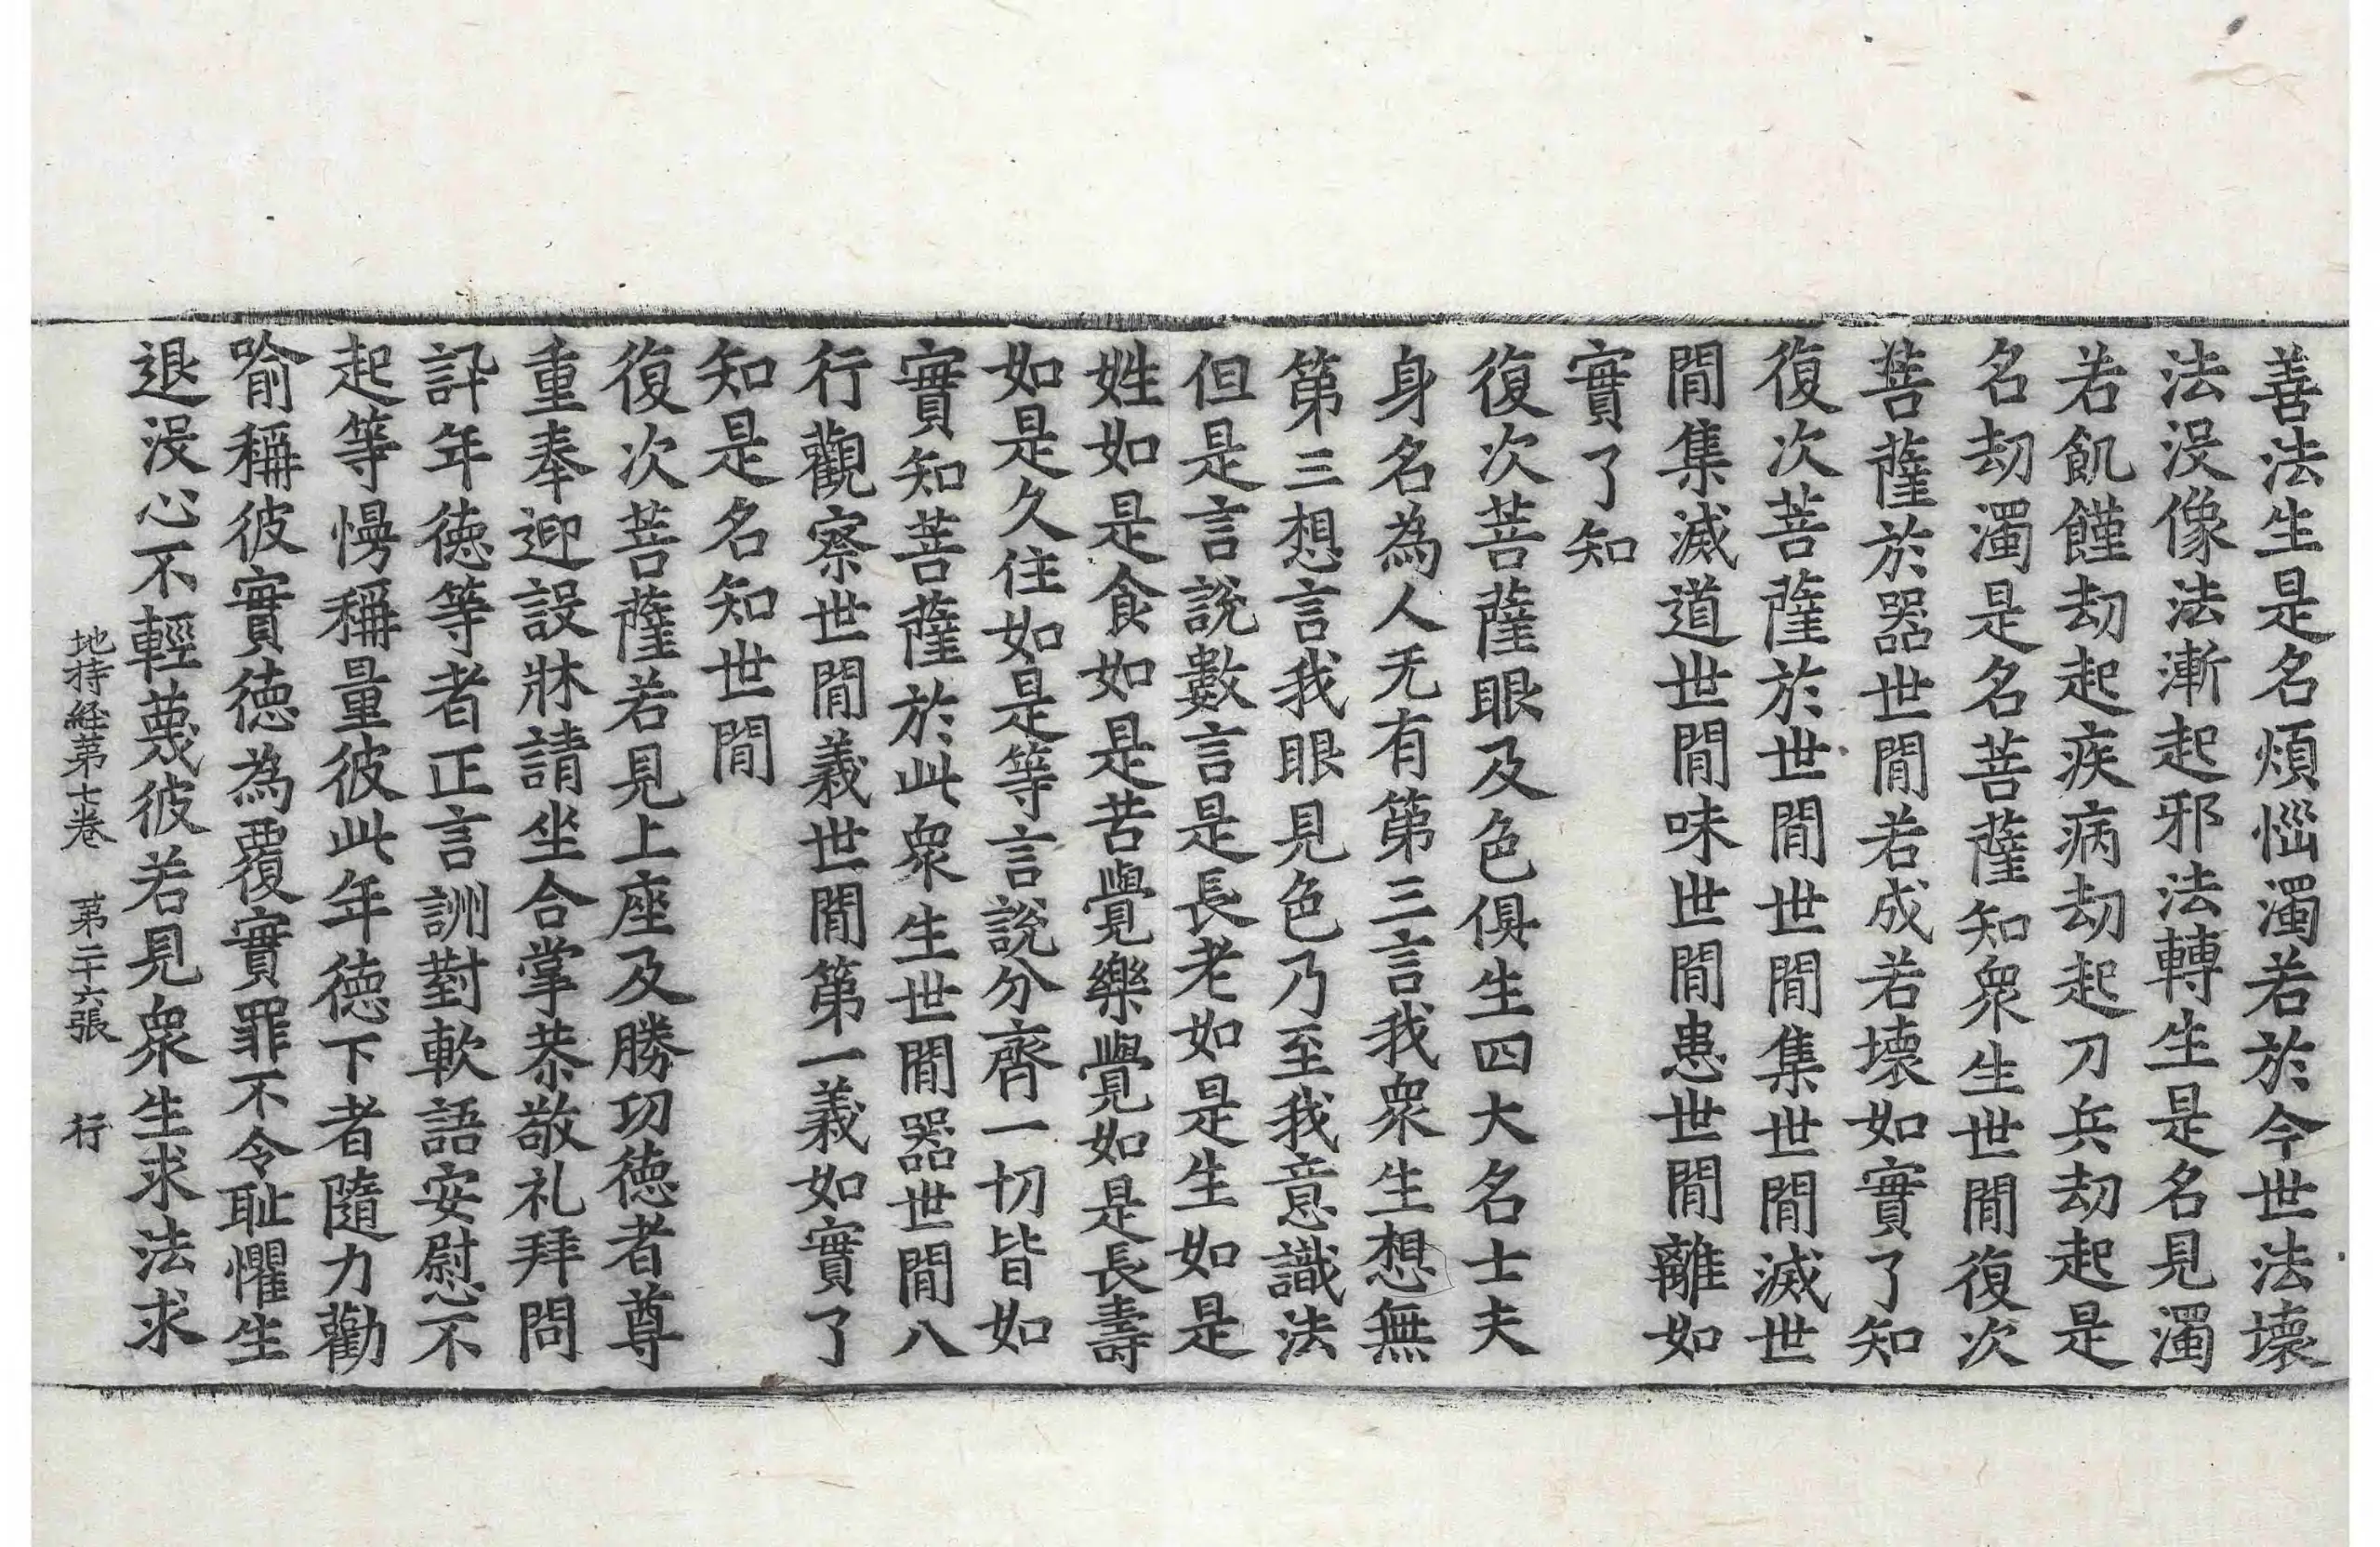 善法生是名煩惱濁若於今世法壞
法沒像法漸起邪法轉生是名見濁
若飢饉劫起疾病劫起刀兵劫起是
名劫濁是名菩薩知衆生世閒復次
菩薩於器世閒若成若壞如實了知
復次菩薩於世閒世閒集世閒滅世
閒集滅道世閒味世閒患世閒離如
實了知
復次菩薩眼及色俱生四大名士夫
身名為人无有第三言我衆生想無
第三想言我眼見色乃至我意識法
但是言說數言是長老如是生如是
姓如是食如是苦覺樂覺如是長壽
如是久住如是等言說分齊一切皆如
實知菩薩於此衆生世閒器世閒八
行觀察世閒義世閒第一義如實了
知是名知世閒
復次菩薩若見上座及勝功德者尊
重奉迎設牀請坐合掌恭敬礼拜問
訊年德等者正言詶對軟語安慰不
起等慢稱量彼此年德下者隨力勸
喻稱彼實德為覆實罪不令耻懼生
退沒心不輕蔑彼若見衆生求法求
地持経第七卷 第二十六張 行